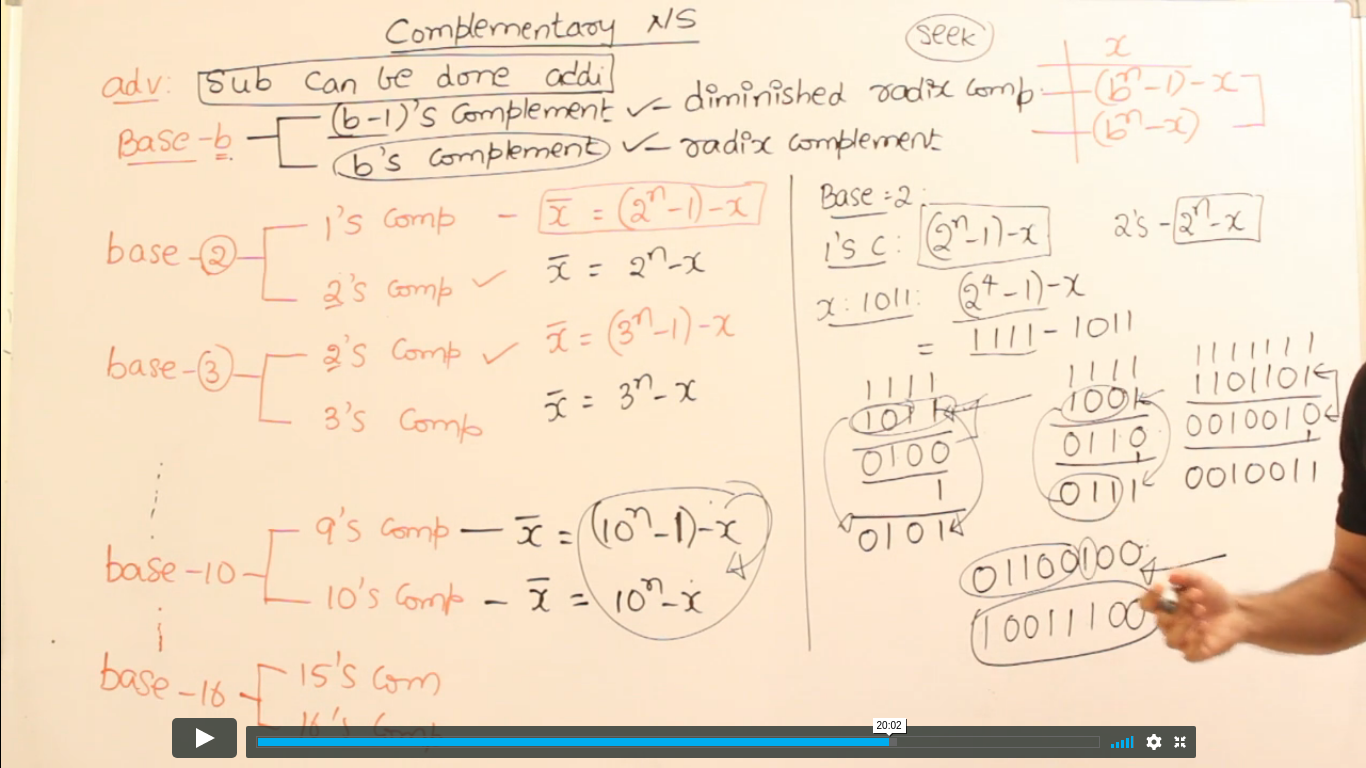 Complementary N/S
seek
adv: Sub can be done addi
Base-b
(b-1)'s complement ✓ - diminished radix comp.
b's complement ✓ - radix complement
x
(bⁿ-1)-x
(bⁿ-x)
base-2
1's comp - x̅ = (2ⁿ-1)-x
2's comp ✓ x̅ = 2ⁿ-x
base-3
2's comp ✓ x̅ = (3ⁿ-1)-x
3's comp x̅ = 3ⁿ-x
base-10
9's comp - x̅ = (10ⁿ-1)-x
10's comp - x̅ = 10ⁿ-x
base-16
15's com
16's
Base=2:
1's C: (2ⁿ-1)-x
2's - 2ⁿ-x
x: 1011: (2⁴-1)-x
= 1111 - 1011
1111
1011
0100
1
0101
1111
1001
0110
1
0111
1111111
1101101
0010010
1
0010011
01100100
10011100
20:02